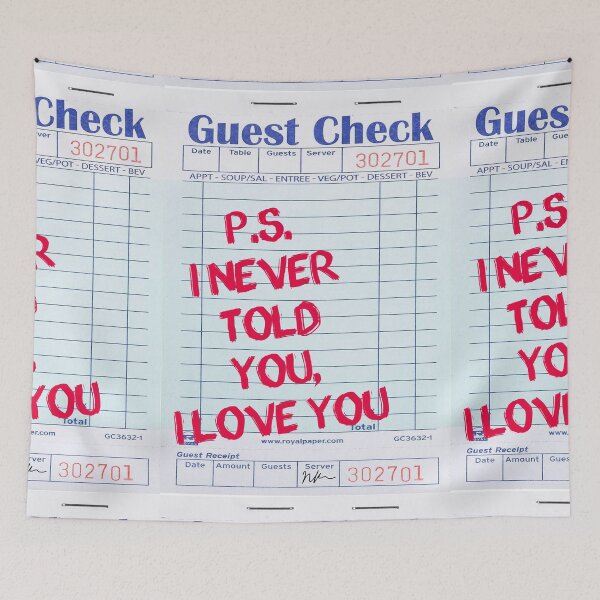 Check
Guest Check
Gues
ver
302701
Date Table Guests Server
302701
Date Table
VEG/POT - DESSERT - BEV
APPT - SOUP/SAL - ENTREE - VEG/POT - DESSERT - BEV
APPT - SOUP/SAL - ENTREE
R
P.S.
I NEVER
TOLD
YOU,
I LOVE YOU
P.S
I NEV
TOL
YO
I LOVE
YOU
Total
GC3632-1
Total
www.royalpaper.com
GC3632-1
www.roy
Guest Receipt
Guest Receipt
rver
302701
Date Amount Guests Server
302701
Date Amount Guests